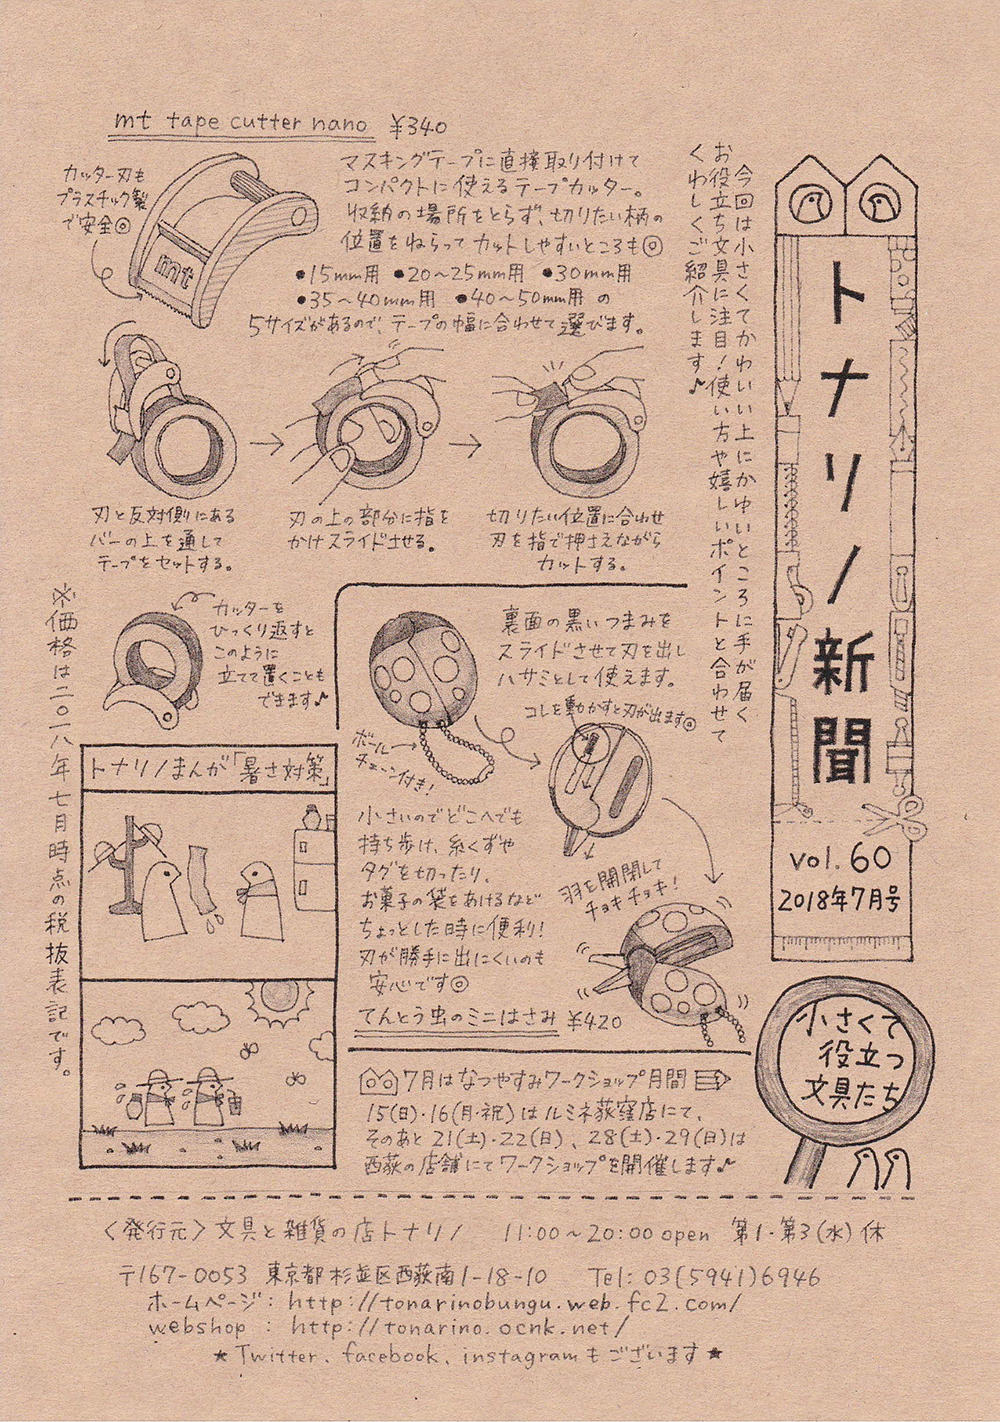 トナリノ新聞
vol. 60
2018年7月号
小さくて
役立つ
文具たち
今回は小さくてかわいい上にかゆいところに手が届く
お役立ち文具に注目！使い方や嬉しいポイントと合わせて
くわしくご紹介します♪
mt tape cutter nano ¥340
カッター刃も
プラスチック製
で安全◎
mt
マスキングテープに直接取り付けて
コンパクトに使えるテープカッター。
収納の場所をとらず、切りたい柄の
位置をねらってカットしやすいところも◎
●15mm用 ●20～25mm用 ●30mm用
●35～40mm用 ●40～50mm用 の
5サイズがあるので、テープの幅に合わせて選びます。
刃と反対側にある
バーの上を通して
テープをセットする。
刃の上の部分に指を
かけスライドさせる。
切りたい位置に合わせ
刃を指で押さえながら
カットする。
カッターを
ひっくり返すと
このように
立てて置くことも
できます♪
裏面の黒いつまみを
スライドさせて刃を出し
ハサミとして使えます。
コレを動かすと刃が出ます◎
ボール
チェーン付き！
小さいのでどこへでも
持ち歩け、糸くずや
タグを切ったり、
お菓子の袋をあけるなど
ちょっとした時に便利！
刃が勝手に出にくいのも
安心です◎
羽を開閉して
チョキチョキ！
てんとう虫のミニはさみ ¥420
トナリノまんが「暑さ対策」
※価格は二〇一八年七月時点の税抜表記です。
7月はなつやすみワークショップ月間
15(日)・16(月・祝)はルミネ荻窪店にて、
そのあと21(土)・22(日)、28(土)・29(日)は
西荻の店舗にてワークショップを開催します♪
〈発行元〉文具と雑貨の店トナリノ 11:00～20:00 open 第1・第3(水)休
〒167-0053 東京都杉並区西荻南1-18-10 Tel: 03(5941)6946
ホームページ: http://tonarinobungu.web.fc2.com/
webshop : http://tonarino.ocnk.net/
★Twitter、facebook、instagramもございます★